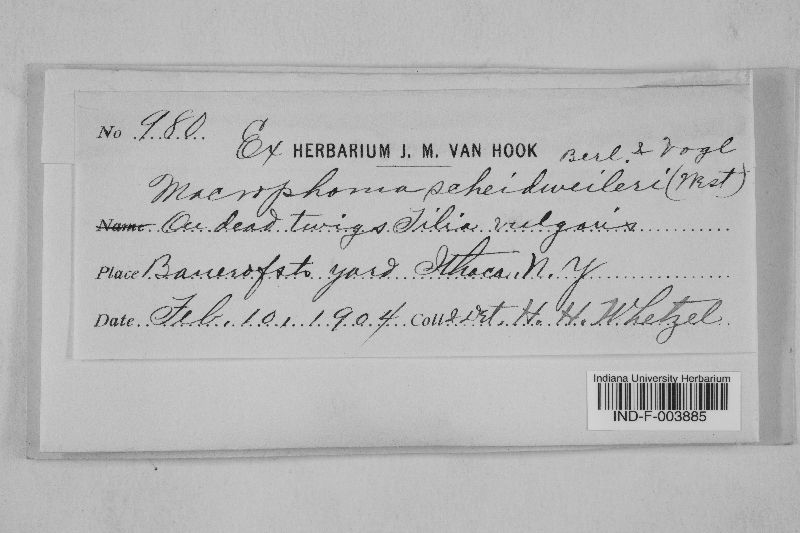 No 980.
Ex HERBARIUM J. M. VAN HOOK
Berl. & Vogl
Macrophoma scheidweileri (Wst)
Name. On dead twigs Tilia vulgaris
Place Bancrofts yard Ithaca N. Y
Date. Feb. 10, 1904 Coll & Det. H. H. Whetzel
Indiana University Herbarium
IND-F-003885